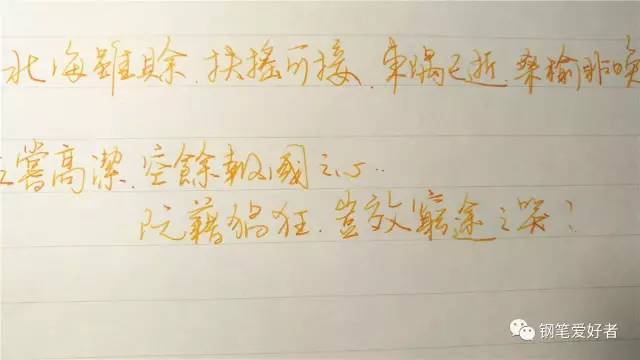 北海雖賒.扶搖可接.東隅已逝.桑榆非晚
之嘗高潔.空餘報國之心..
阮藉猖狂.豈效窮途之哭?
钢笔爱好者